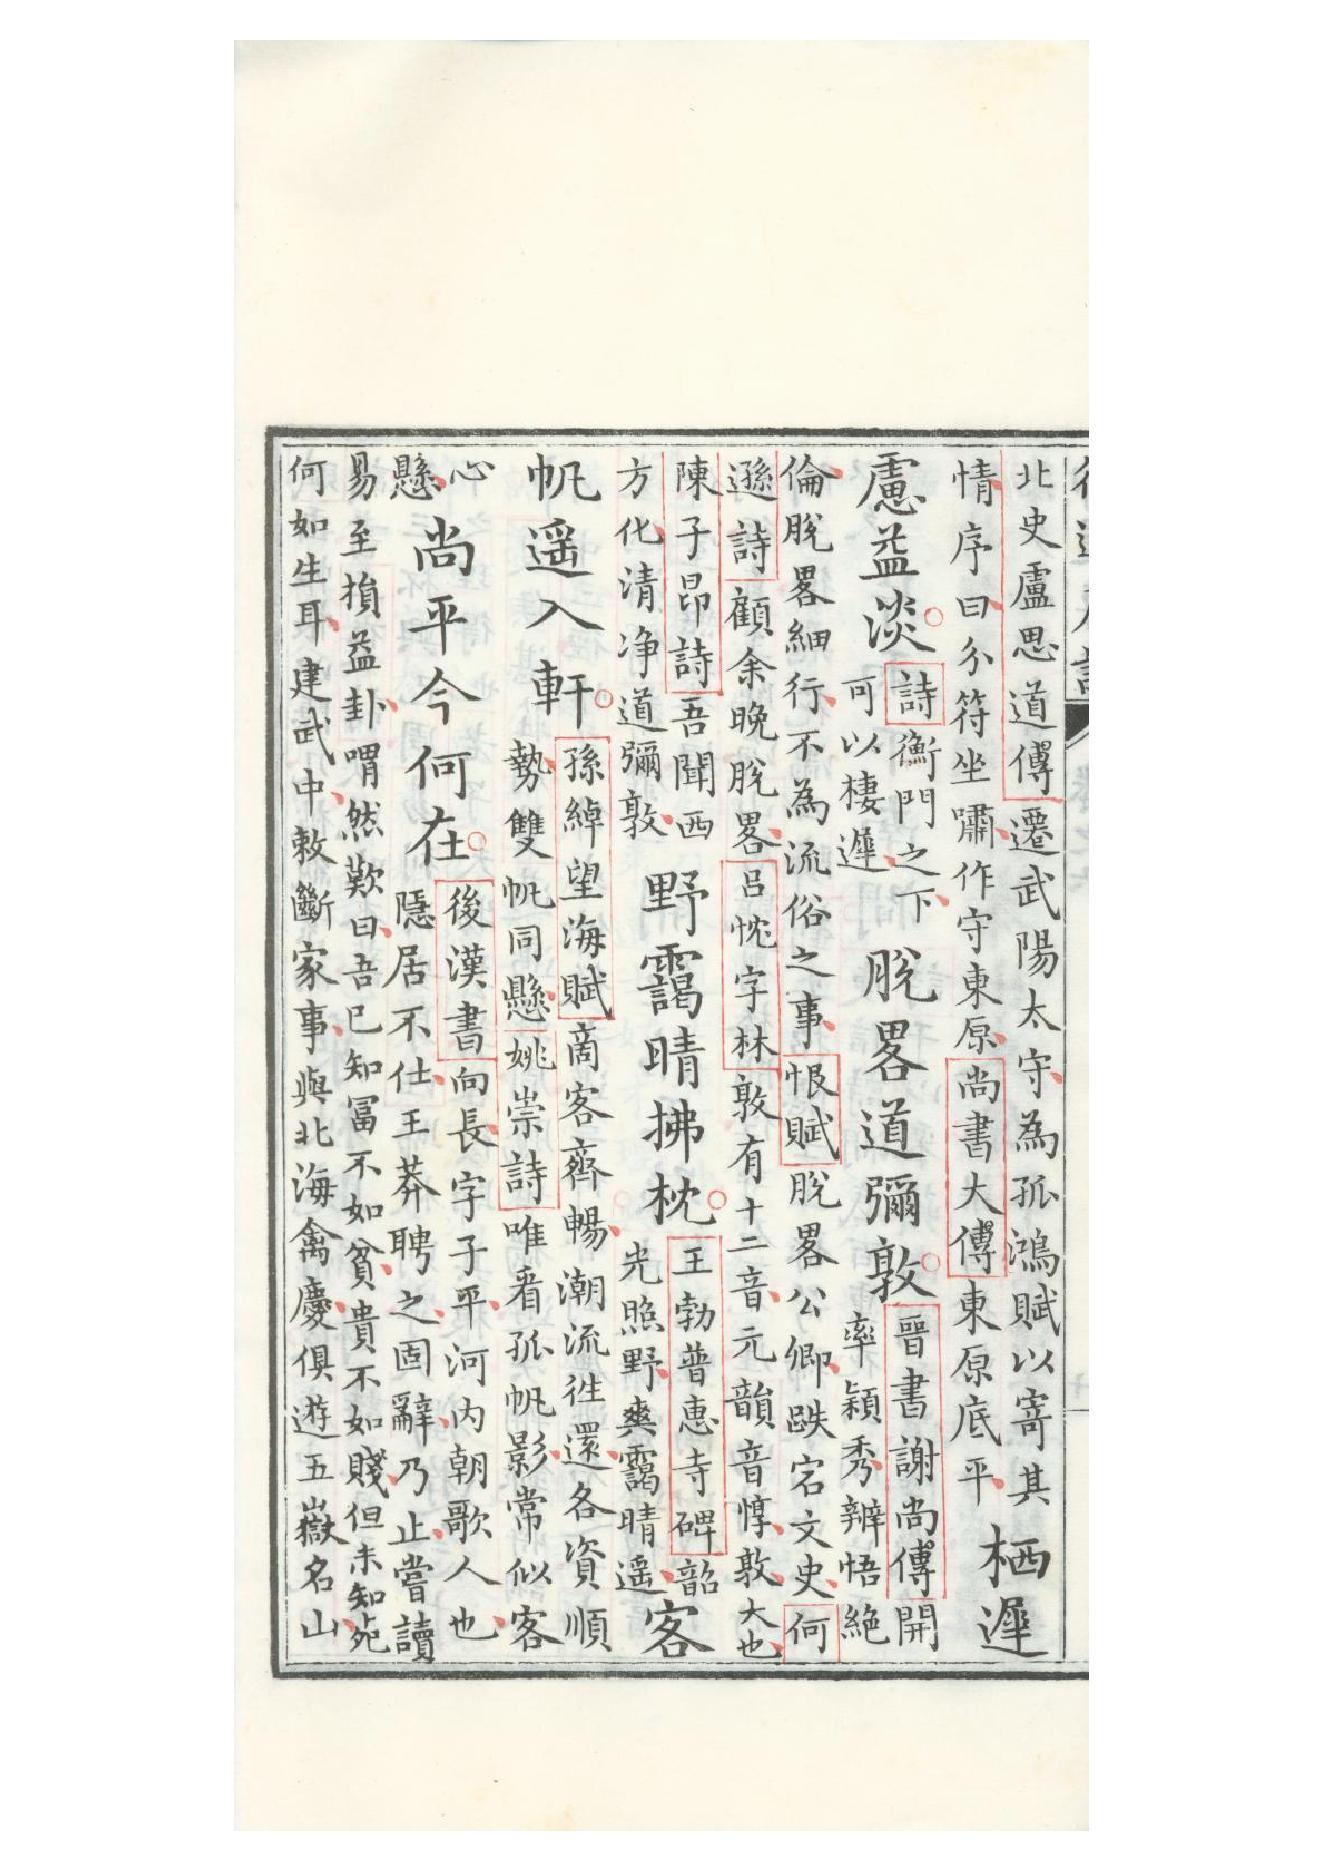 北史盧思道傳遷武陽太守為孤鴻賦以寄其
情序曰分符坐嘯作守東原尚書大傳東原底平
栖遲
慮益淡
詩衡門之下
可以棲遲
脫畧道彌敦
晉書謝尚傳開
率穎秀辨悟絶
倫脫畧細行不為流俗之事恨賦脫畧公卿跌宕文史何
遜詩顧余晚脫畧呂忱字林敦有十二音元韻音惇敦大也
陳子昂詩吾聞西
方化清净道彌敦
野靄晴拂枕
王勃普惠寺碑韶
光照野爽靄晴遥
客
帆遥入軒
孫綽望海賦商客齊暢潮流徃還各資順
勢雙帆同懸姚崇詩唯看孤帆影常似客
心
懸
尚平今何在
後漢書向長字子平河内朝歌人也
隱居不仕王莽聘之固辭乃止嘗讀
易至損益卦喟然歎曰吾已知冨不如貧貴不如賤但未知死
何如生耳建武中敕斷家事與北海禽慶俱遊五嶽名山